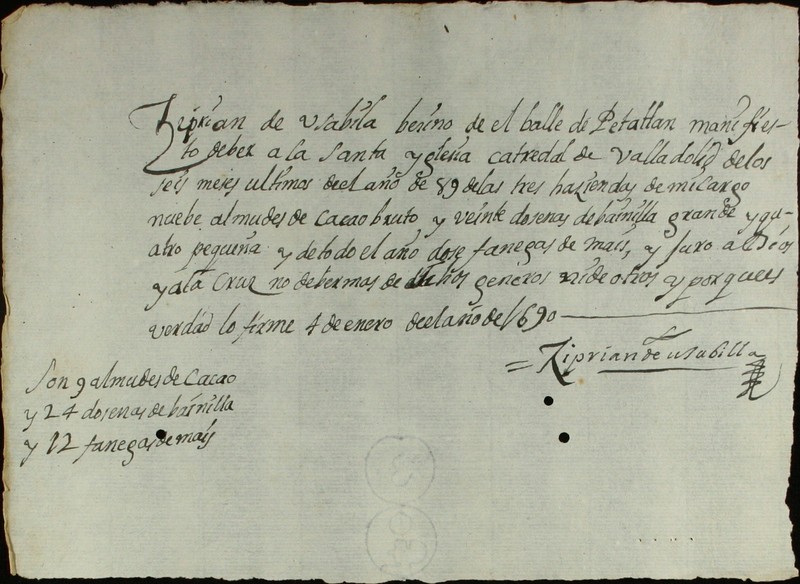 Ziprian de Vsabila besino de el balle de Petatlan manifies-
to deber a la Santa yglesia catredal de Valladolid de los
seis meses ultimos de el año de 89 de las tres haziendas de mi cargo
nuebe almudes de cacao bruto y veinte dosenas de bainilla grande y qu-
atro pequeña y de todo el año dose fanegas de mais, y juro a Dios
y a la Cruz no deber mas de dichos generos ni de otros y porque es
verdad lo firme 4 de enero de el año de 1690
Ziprian de usabilla
Son 9 almudes de Cacao
y 24 dosenas de bainilla
y 12 fanegas de mais